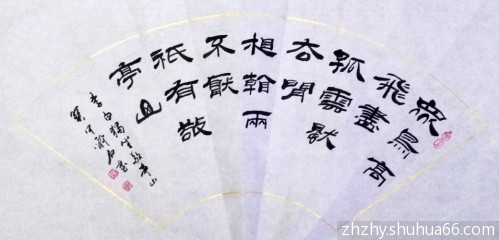 眾鳥高
飛盡
孤雲獨
去閒
相看兩
不厭
祇有敬
亭山
李白獨坐敬亭山
zhzhy.shuhua66.com